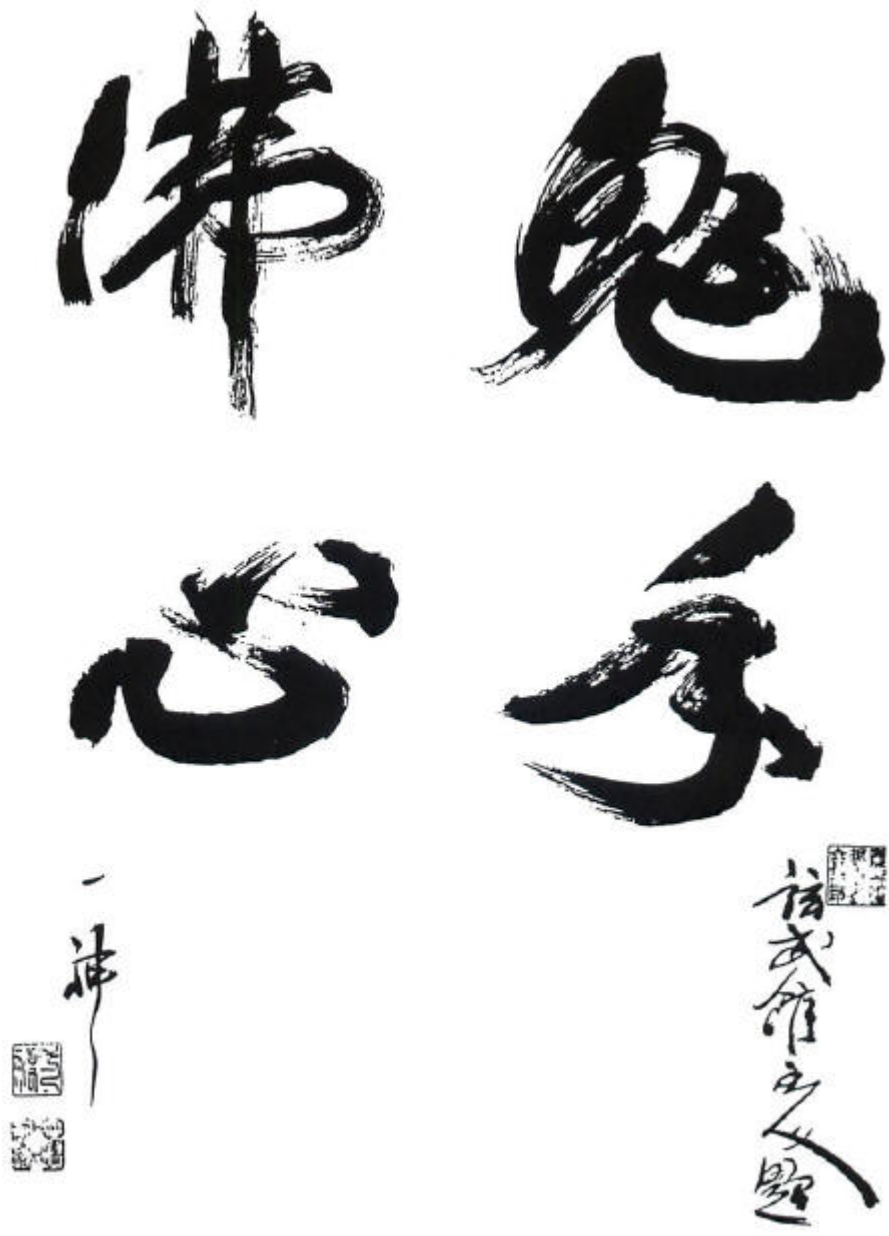 鬼手
佛心
武館主人題
一